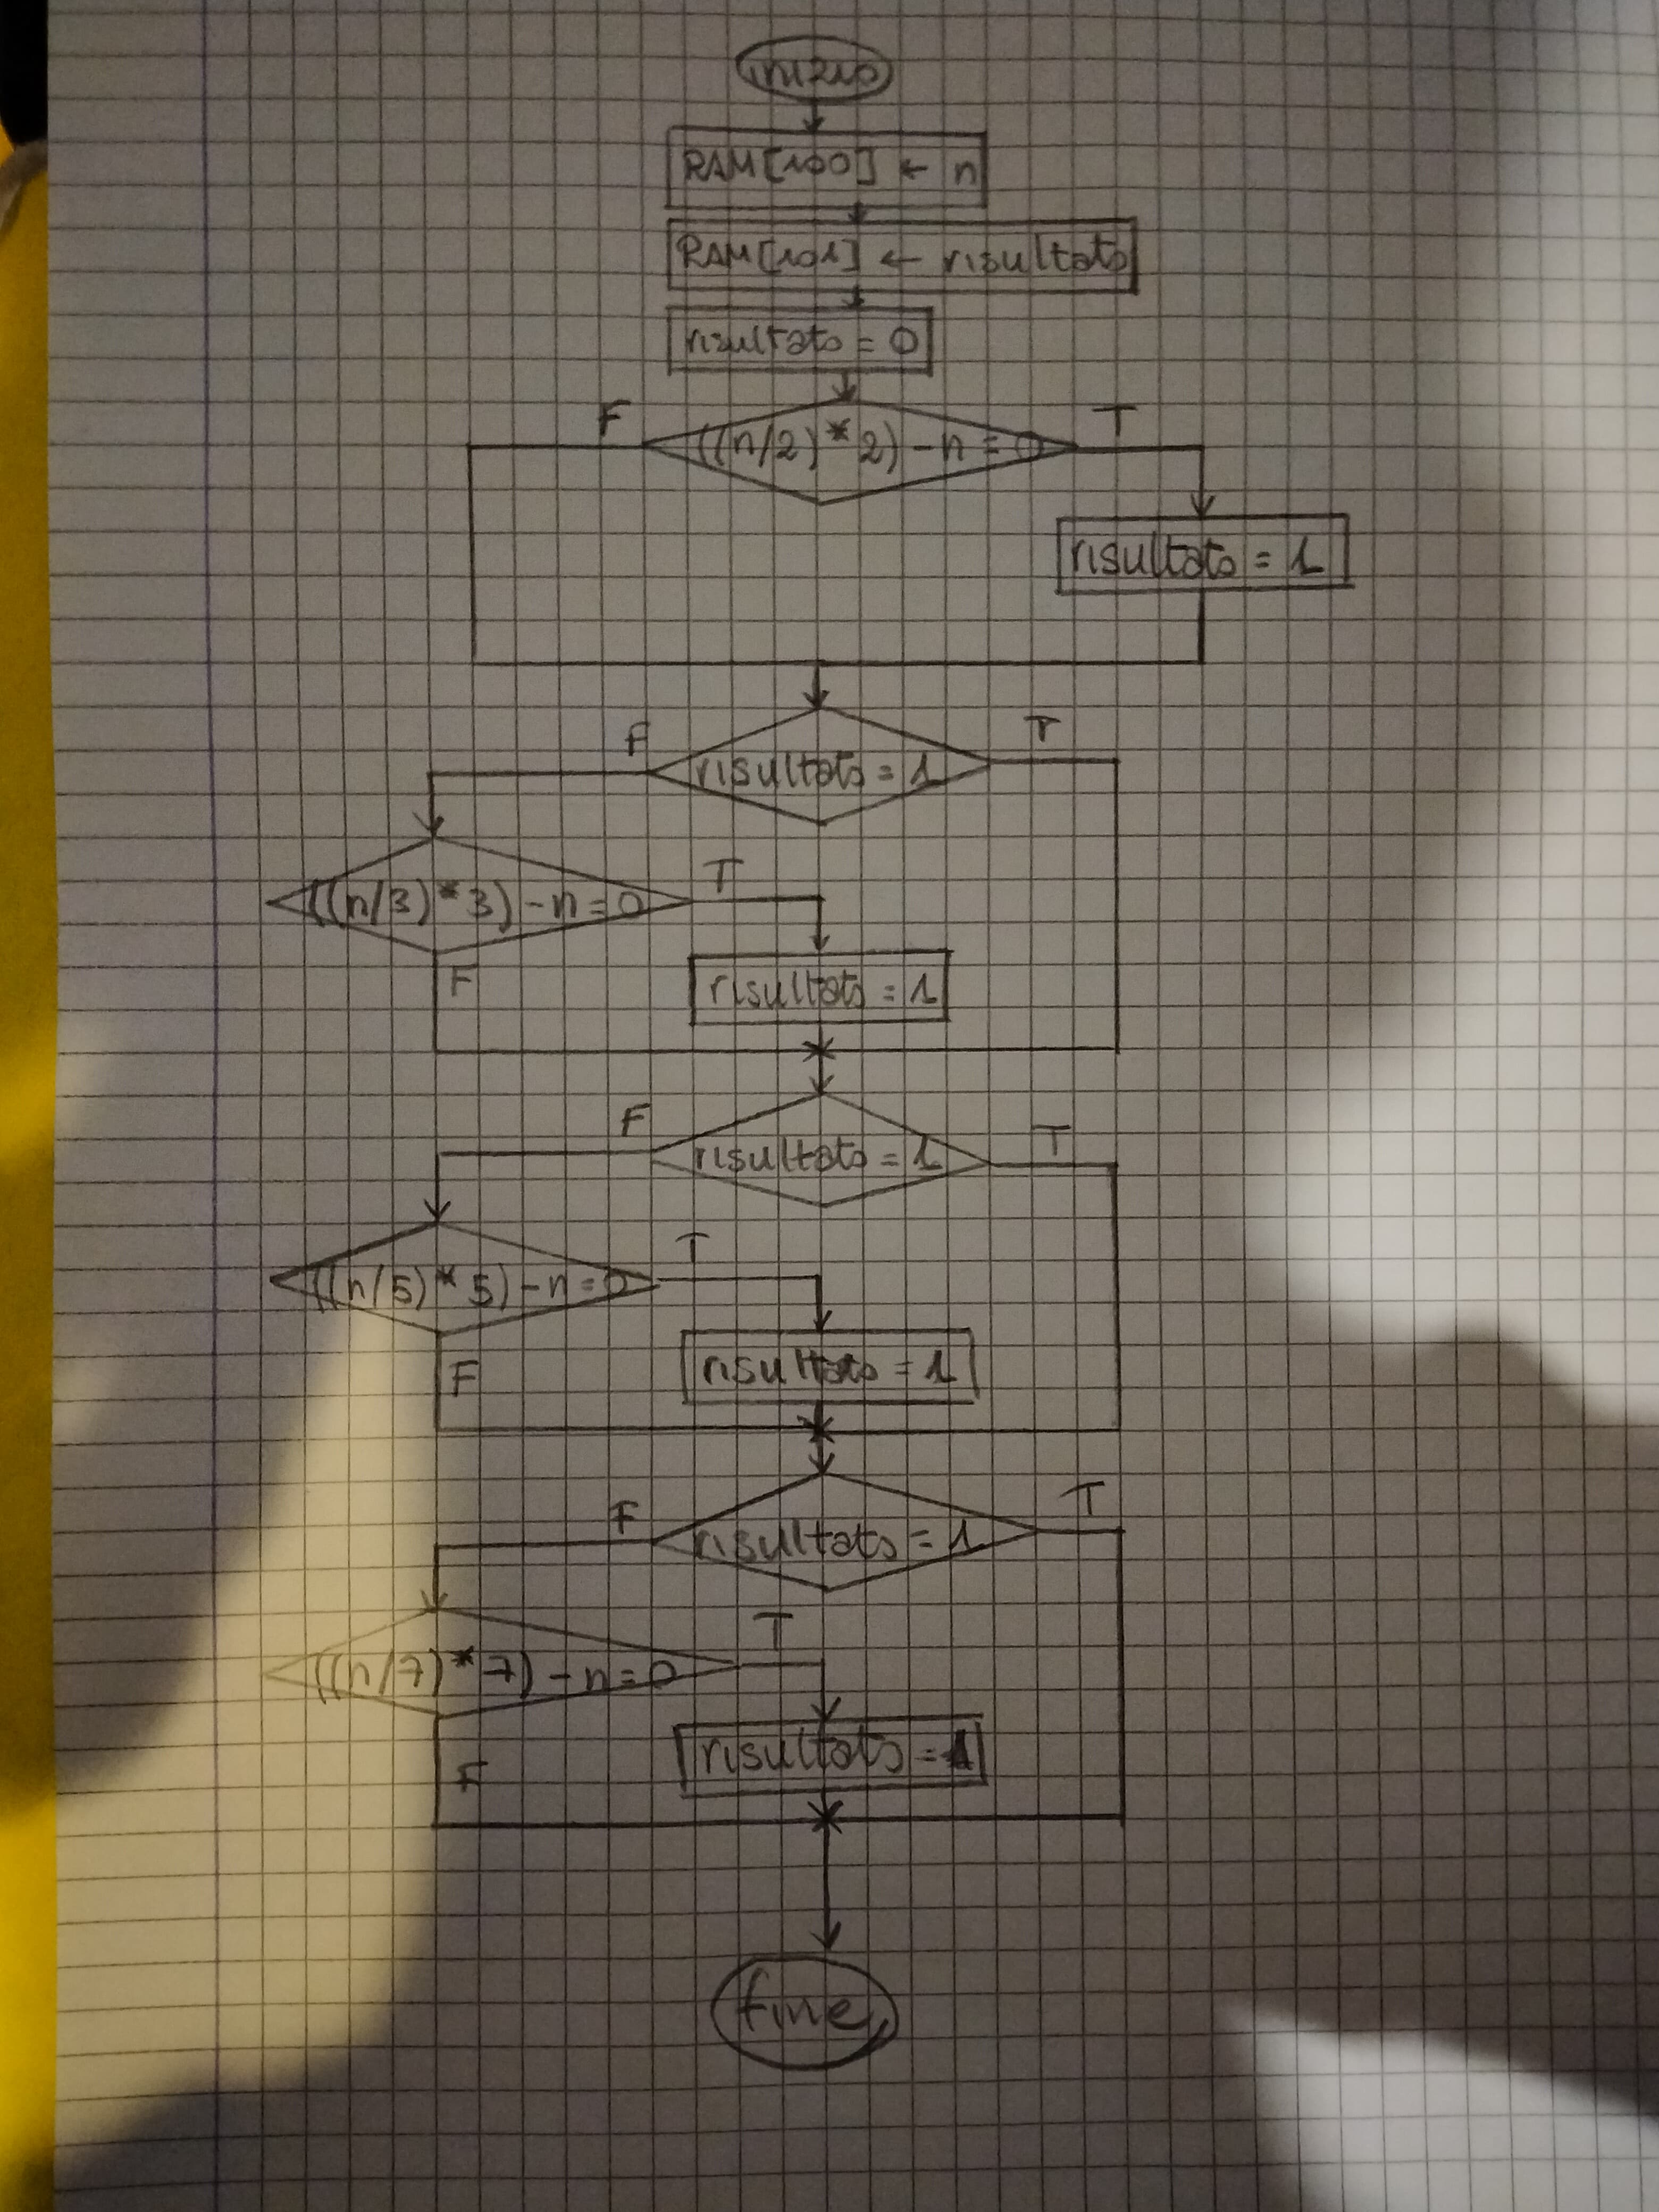 inizio
RAM[100] ← n
RAM[101] ← risultato
risultato = 0
F ((n/2)*2) - n = 0 T
risultato = 1
F risultato = 1 T
((n/3)*3) - n = 0 T
F risultato = 1
F risultato = 1 T
((n/5)*5) - n = 0 T
F risultato = 1
F risultato = 1 T
((n/7)*7) - n = 0 T
F risultato = 1
fine